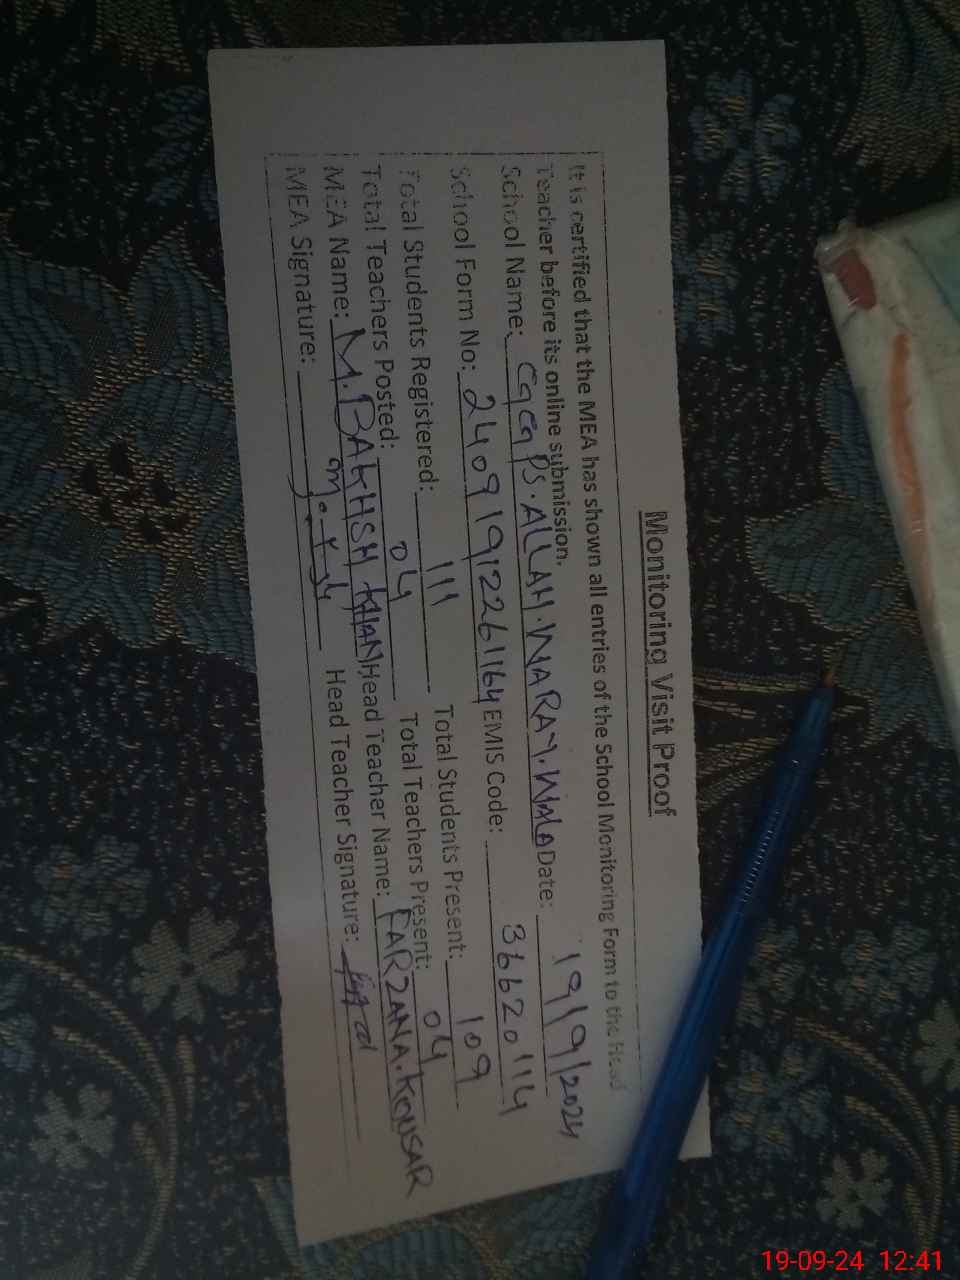 Monitoring Visit Proof
It is certified that the MEA has shown all entries of the School Monitoring Form to the Head
Teacher before its online submission.
School Name: GGEPS. ALLAH. WARAY. WALA Date: 19/9/2024
School Form No: 24091912261164 EMIS Code: 36620114
Total Students Registered: 111 Total Students Present: 109
Total Teachers Posted: 04 Total Teachers Present: 04
MEA Name: M. BAKHSH KHAN Head Teacher Name: FARZANA. KOUSAR
MEA Signature: Head Teacher Signature:
19-09-24 12:41